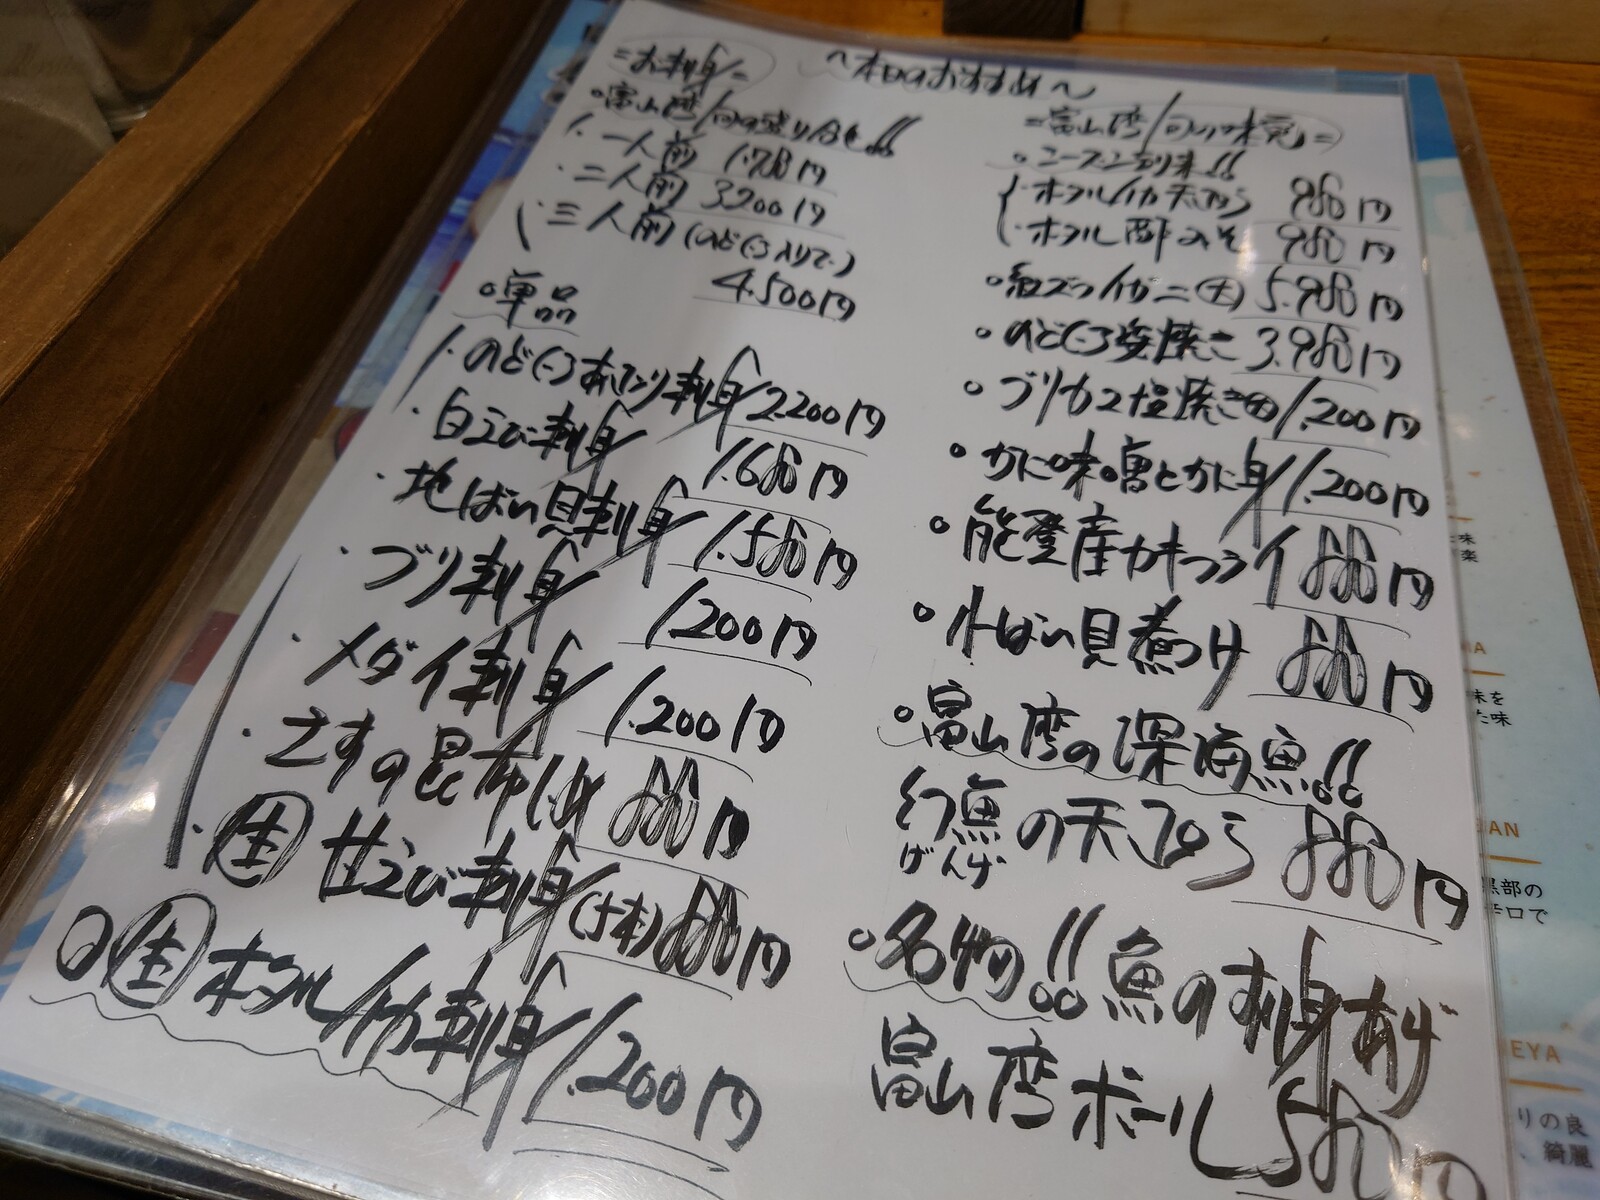 〜本日のおすすめ〜
=お刺身=
○富山湾 旬の盛り合せ!!
・一人前 1.780円
・二人前 3200円
・三人前(のどぐろ入りで)
4.500円
○単品
・のどぐろあぶり刺身 2.200円
・白えび刺身 1.680円
・地ばい貝刺身 1.580円
・ブリ刺身 1.200円
・メダイ刺身 1.200円
・さすの昆布じめ 880円
・生 甘えび刺身(5本) 880円
○生 ホタルイカ刺身 1.200円
=富山湾 旬の味覚=
○シーズン到来!!
・ホタルイカ天ぷら 980円
・ホタル酢みそ 980円
○紅ズワイガニ(大) 5.980円
○のどぐろ姿焼き 3.980円
○ブリカマ塩焼き 1.200円
○かに味噌とかに身 1.200円
○能登産カキフライ 880円
○小ばい貝煮つけ 880円
○富山湾の深海魚!!
幻魚の天ぷら 880円
げんげ
○名物!!魚のすり身あげ
富山湾ボール 580円
味を
た味
黒部の
辛口で
りの良
、綺麗